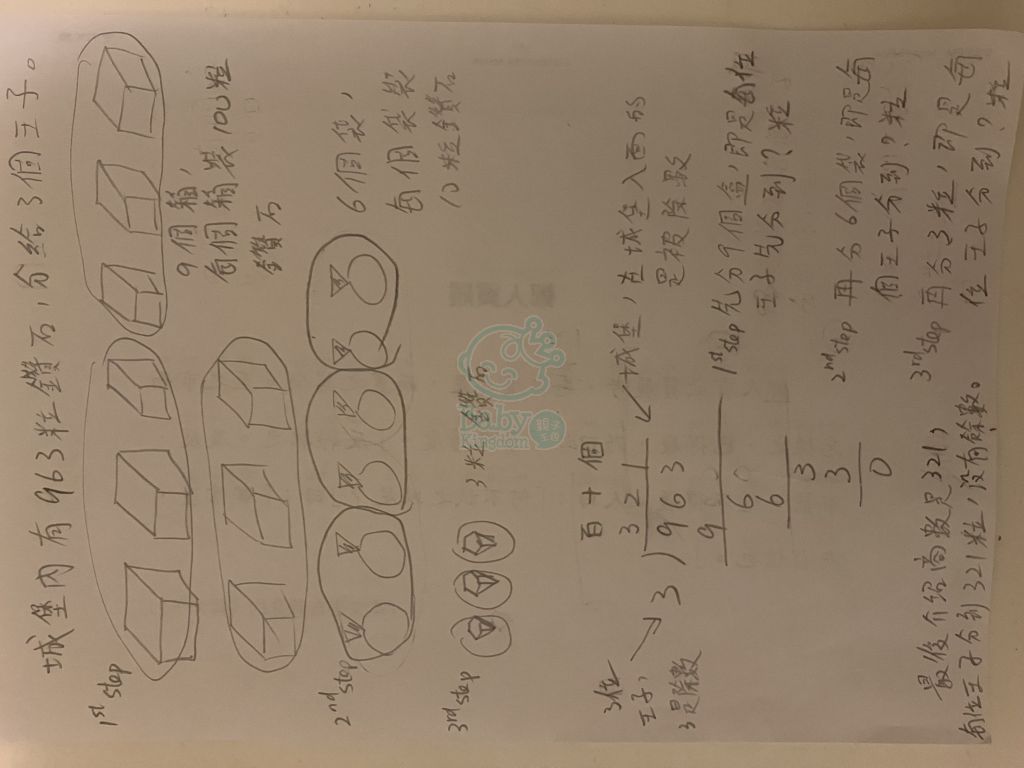 城堡內有963粒鑽石，分給3個王子。
1st step
9個箱，
每個箱裝100粒
鑽石
2nd step
6個袋，
每個袋裝
10粒鑽石
3rd step
3粒鑽石
百十個
321
3)963
9
6
6
3
3
0
3位
王子，
3是除數
城堡，在城堡入面的
是被除數
1st step 先分9個盒，即是每位
王子先分到？粒
2nd step 再分6個袋，即是每
個王子分到？粒
3rd step 再分3粒，即是每
位王子分到？粒
最後介紹商數是321，
每位王子分到321粒，沒有餘數。
Baby
Kingdom
親子
王國